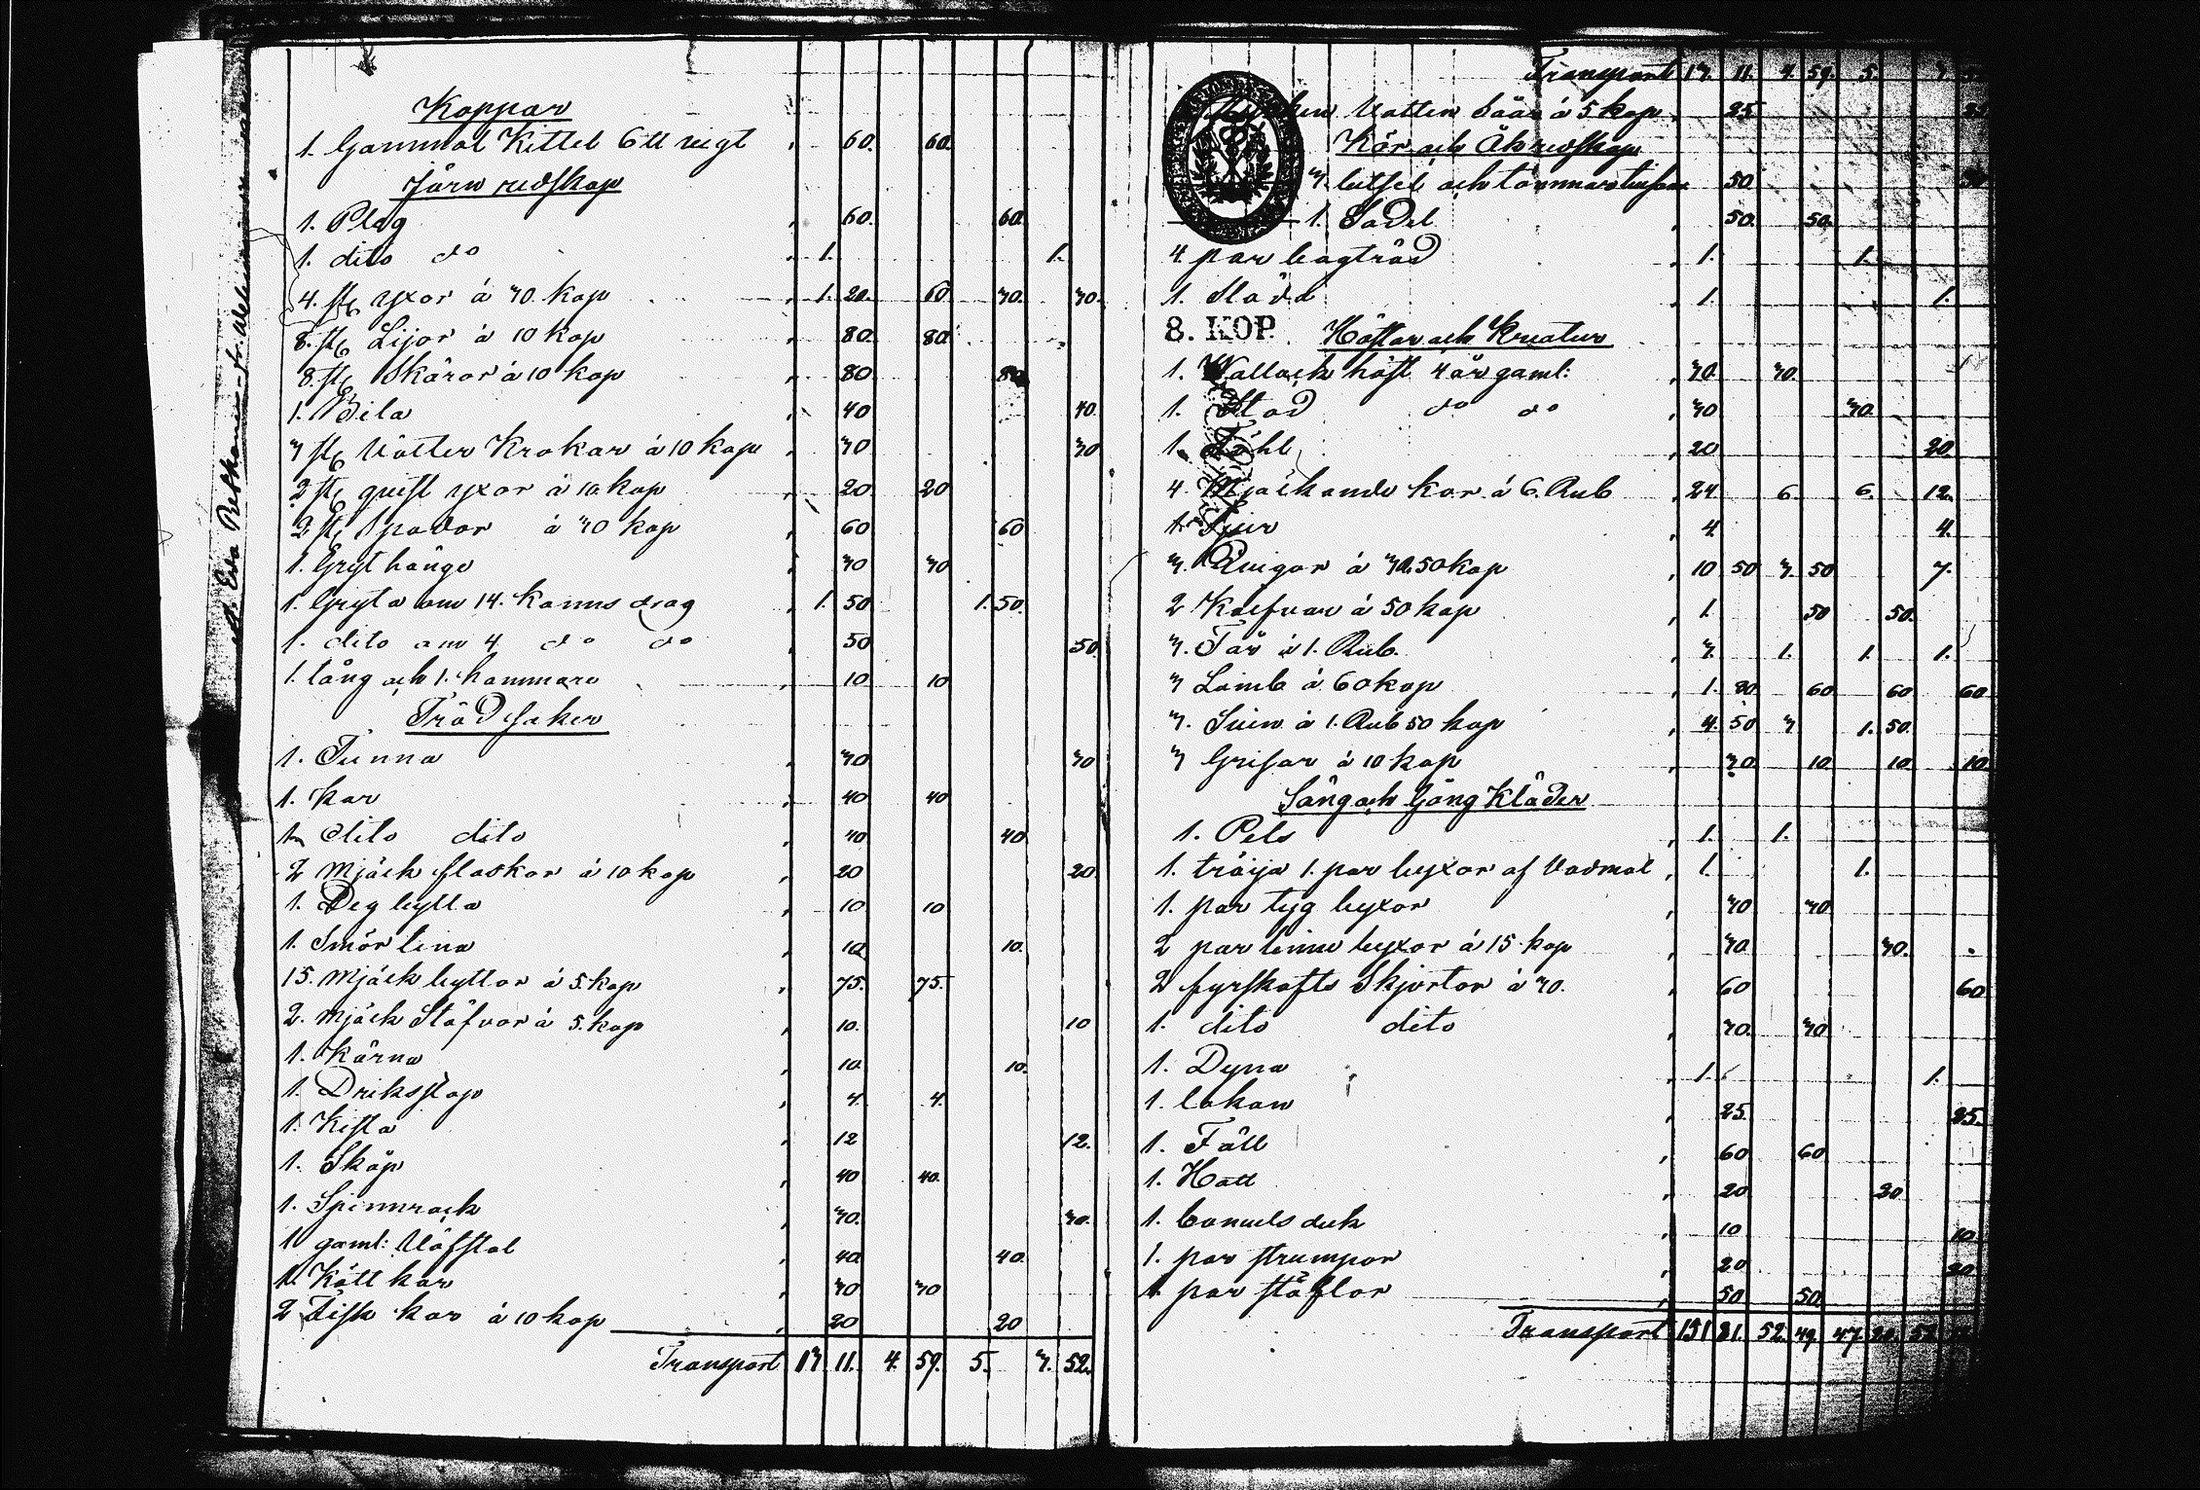 Koppar
1. Gammal Kittel 6 ℔ vigt " 60. 60.
Järn redskap
1. Plog " 60. 60.
1. dito do " 1. 1.
4. st. yxor á 30. kop " 1. 20. 60 30. 30.
8. st. Lijor á 10 kop " 80. 80.
8. st. Skäror á 10 kop " 80. 80.
1. Bila " 40 40.
3 st. Nötter Krokar á 10 kop " 30 30
2 st. quist yxor á 10. kop " 20. 20
2 st. Spador á 30 kop " 60 60
1. Gryt hänge " 30 30
1. Gryta om 14. Kanns drag " 1. 50 1. 50.
1. dito om 4 do do " 50 50.
1. tång och 1. hammare " 10 10
Träd saker
1. Tunna " 30 30
1. Kar " 40 40
1. dito dito " 40. 40.
2 Mjäck flaskor á 10 kop " 20 20.
1. Deg bytta " 10 10
1. Smör bina " 10 10.
15. Mjäck byttor á 5. kop " 75. 75.
2. Mjäck Stäfvor á 5. kop " 10. 10
1. Kärna " 10. 10.
1. Driksstop " 4. 4.
1. Kista " 12 12.
1. Skåp " 40 40.
1. Spinnrock " 30. 30.
1 gaml: Väfstol " 40 40.
1. Kött kar " 30 30
2 Fisk kar á 10 kop " 20 20
Transport 13. 11. 4. 59. 5. 3. 52.
Transport 13. 11. 4. 59. 5. 3.
Vatten Såär á 5 kop " 25
Kör och Åkredskap
3. " 50.
1. Sadel " 50. 50.
4 par bogträd " 1. 1.
1. Släda " 1. 1.
8. KOP. Hästar och Kreatur
1. Wallack häst 4 år gaml: " 30. 30.
1. Stod do do " 30 30.
1. Fåhl " 20 20.
4. Mjäckande kor á 6. Rub " 24 6. 6. 12.
1. Tjur " 4 4.
3. Quigor á 3 R. 50 kop " 10 50 3. 50 7.
2 Kalfvar á 50 kop " 1. 50 50.
3. Får á 1. Rub. " 3. 1. 1. 1.
3 Lamb á 60 kop " 1. 80. 60 60 60
3. Suin á 1. Rub 50 kop " 4. 50 3 1. 50.
3 Grisar á 10 kop " 30. 10. 10. 10
Säng och Gång Kläder
1. Pels " 1. 1.
1. tröija 1. par byxor af Vadmal " 1. 1.
1. par tyg byxor " 30 30.
2 par linne byxor á 15. kop " 30. 30.
2 fyrskafts Skjortor á 30. " 60 60
1. dito dito " 30. 30
1. Dyna " 1. 1.
1. lakan " 25. 25.
1. Fäll " 60 60
1. Hatt " 20 20
1. duk " 10 10
1. par strumpor " 20 20
1. par stöflor " 50 50
Transport 151 81. 52. 49. 47.